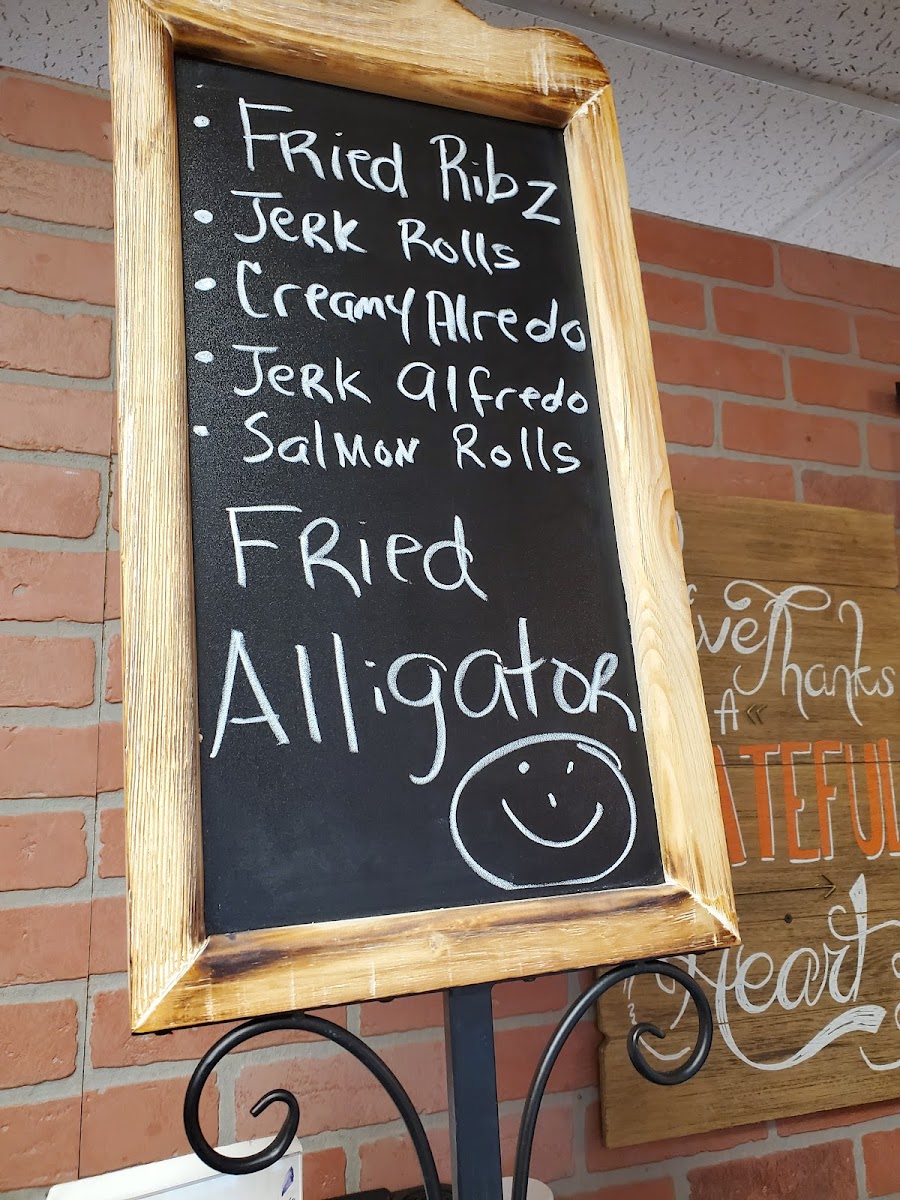 • Fried Ribz
• Jerk Rolls
• Creamy Alredo
• Jerk alfredo
• Salmon Rolls
Fried
Alligator
Thanks
A
Heart